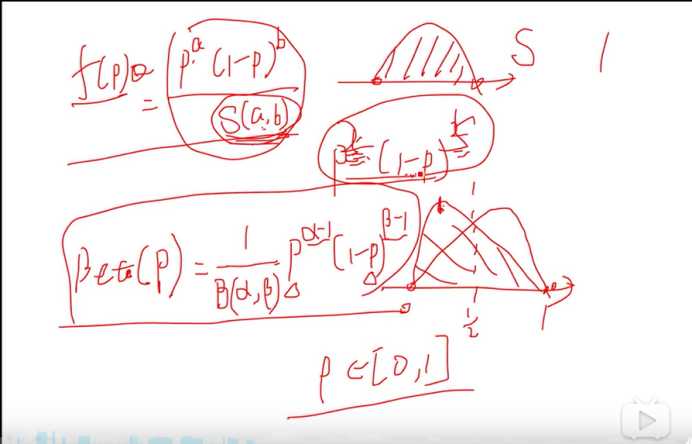 f(p) = p^a (1-p)^b / S(a,b)
S 1
(1-p)
Beta(p) = 1 / B(α,β) p^α-1 (1-p)^β-1
1/2 1
p ∈ [0,1]